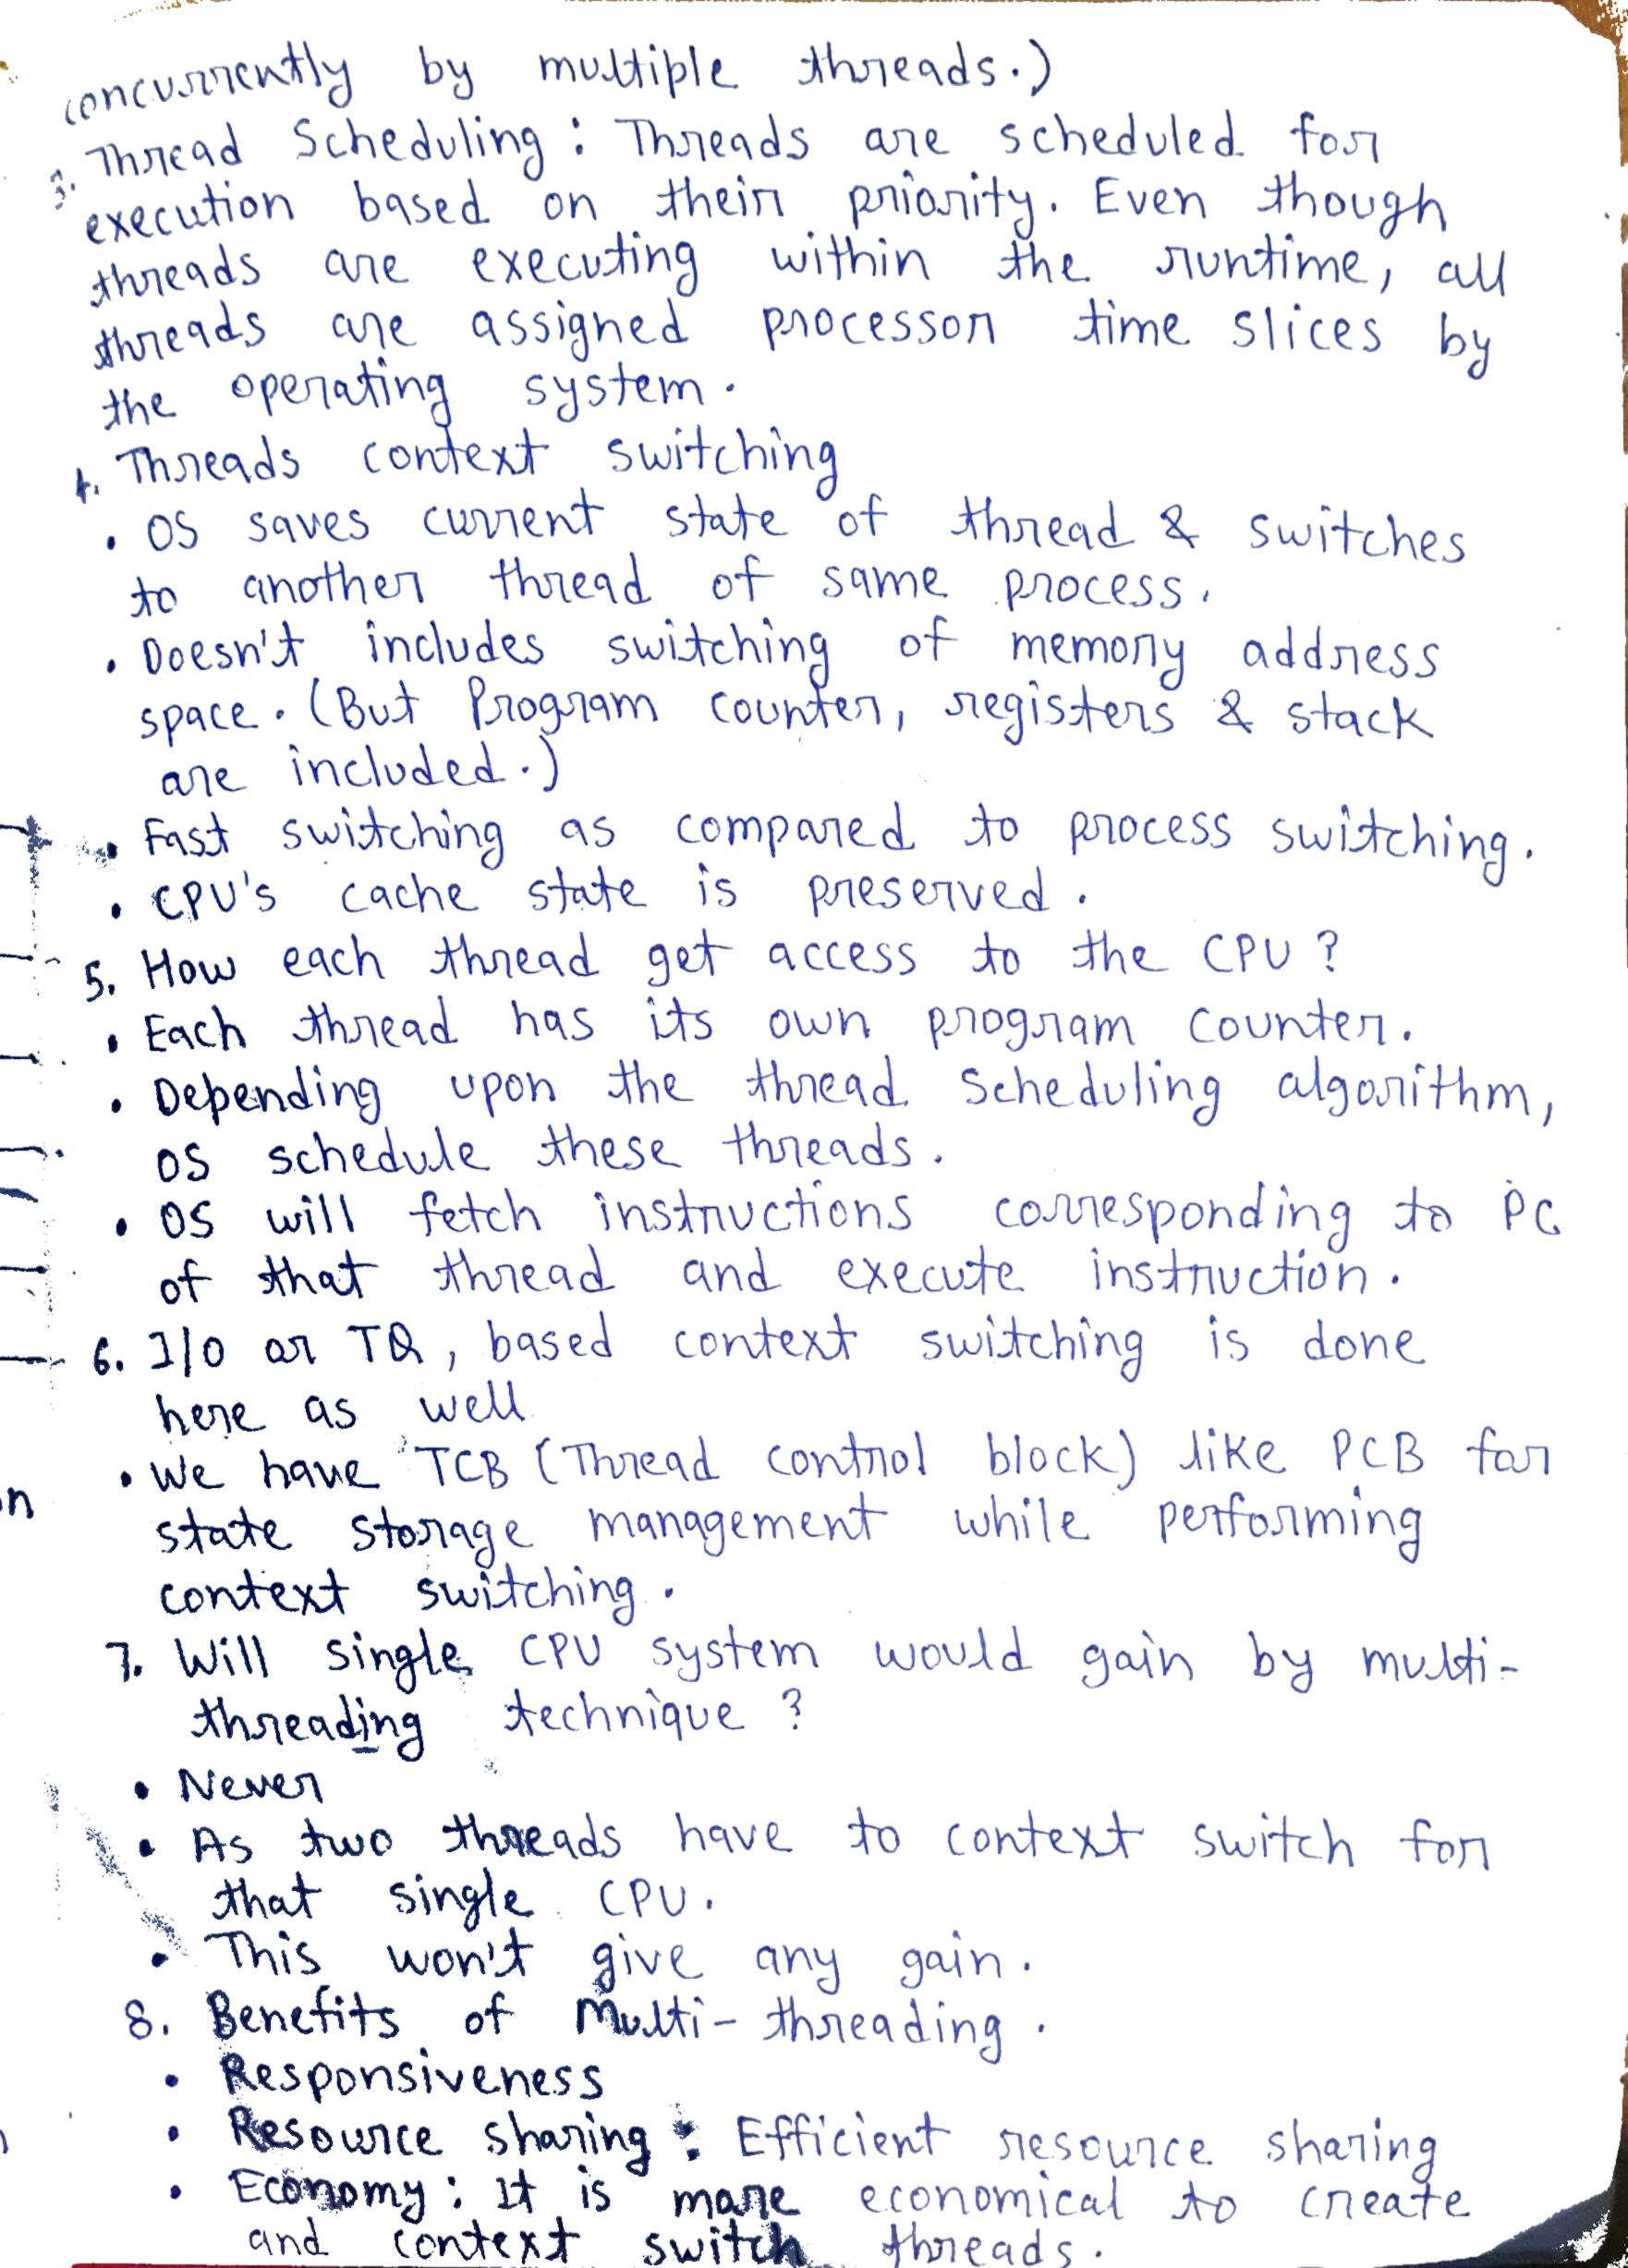 concurrently by multiple threads.)
3. Thread Scheduling : Threads are scheduled for
execution based on their priority. Even though
threads are executing within the runtime, all
threads are assigned processor time slices by
the operating system.
4. Threads context switching
• OS saves current state of thread & switches
to another thread of same process.
• Doesn't includes switching of memory address
space. (But Program counter, registers & stack
are included.)
• Fast switching as compared to process switching.
• CPU's cache state is preserved.
5. How each thread get access to the CPU ?
• Each thread has its own program counter.
• Depending upon the thread scheduling algorithm,
OS schedule these threads.
• OS will fetch instructions corresponding to PC
of that thread and execute instruction.
6. I/O or TQ, based context switching is done
here as well
• We have TCB (Thread control block) like PCB for
state storage management while performing
context switching.
7. Will single CPU system would gain by multi-
threading technique ?
• Never
• As two threads have to context switch for
that single CPU.
• This won't give any gain.
8. Benefits of Multi-threading.
• Responsiveness
• Resource sharing : Efficient resource sharing
• Economy : It is more economical to create
and context switch threads.